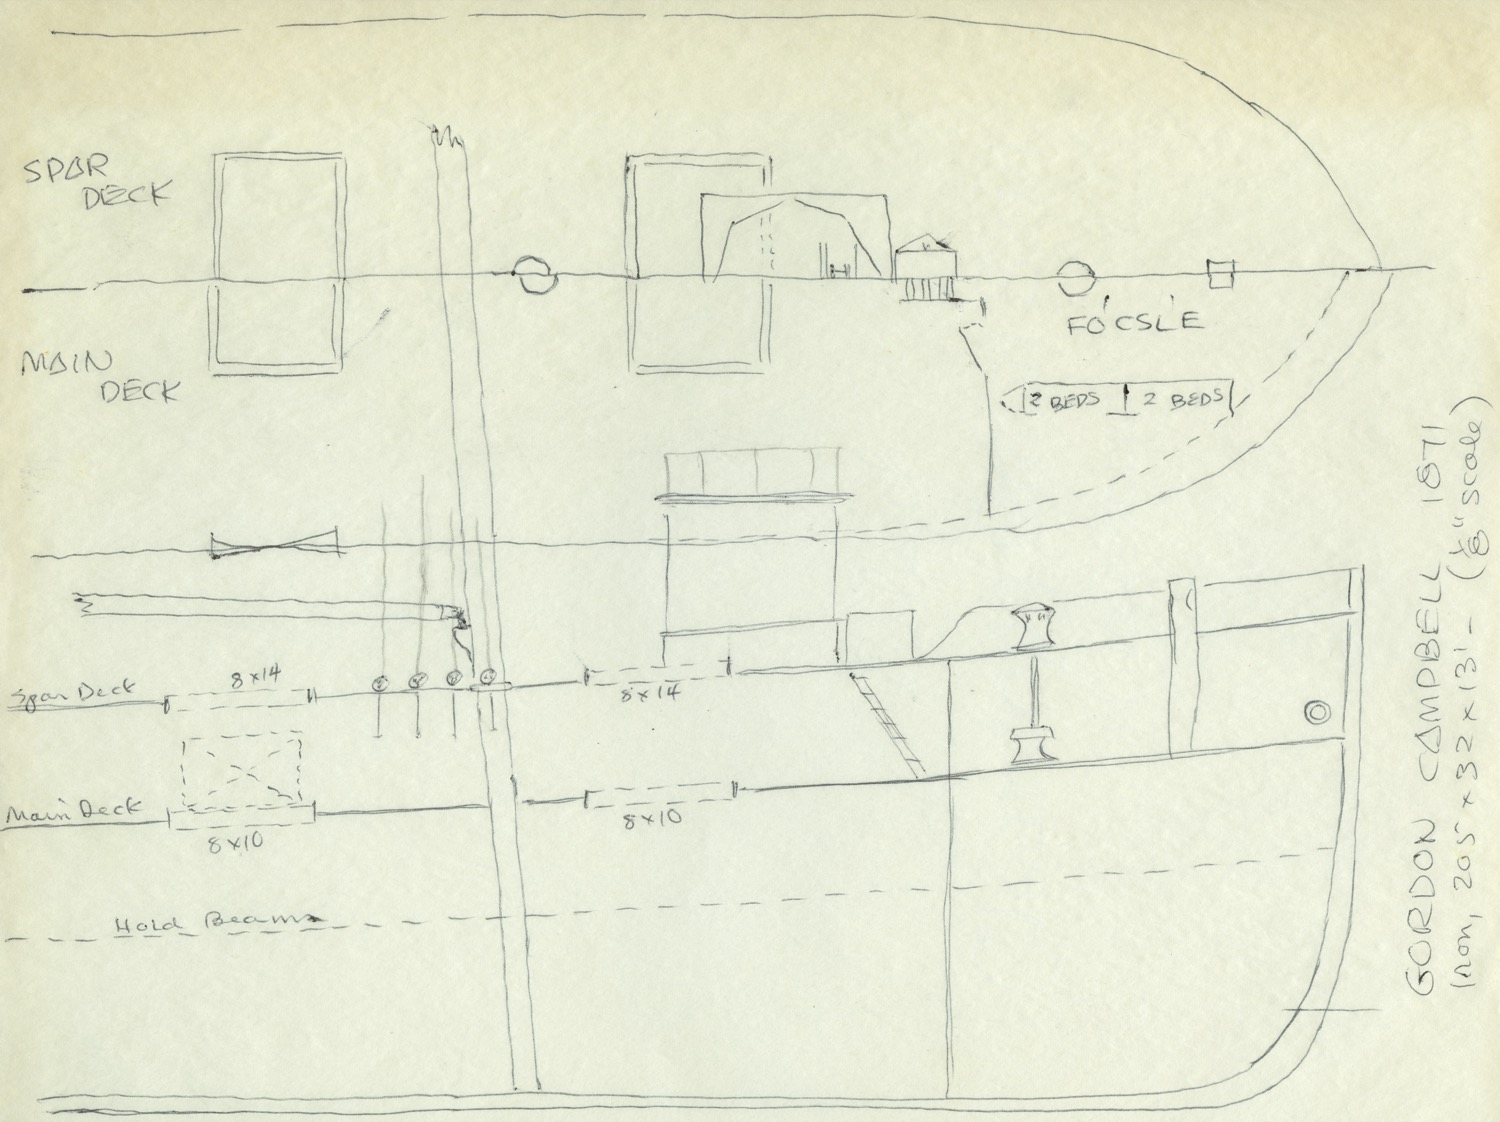 SPAR
DECK
MAIN
DECK
FO'CSL'E
2 BEDS 2 BEDS
Spar Deck
8x14
8x14
Main Deck
8x10
8x10
Hold Beams
GORDON CAMPBELL 1871
Iron, 205 x 32 x 13' - (1/8" scale)